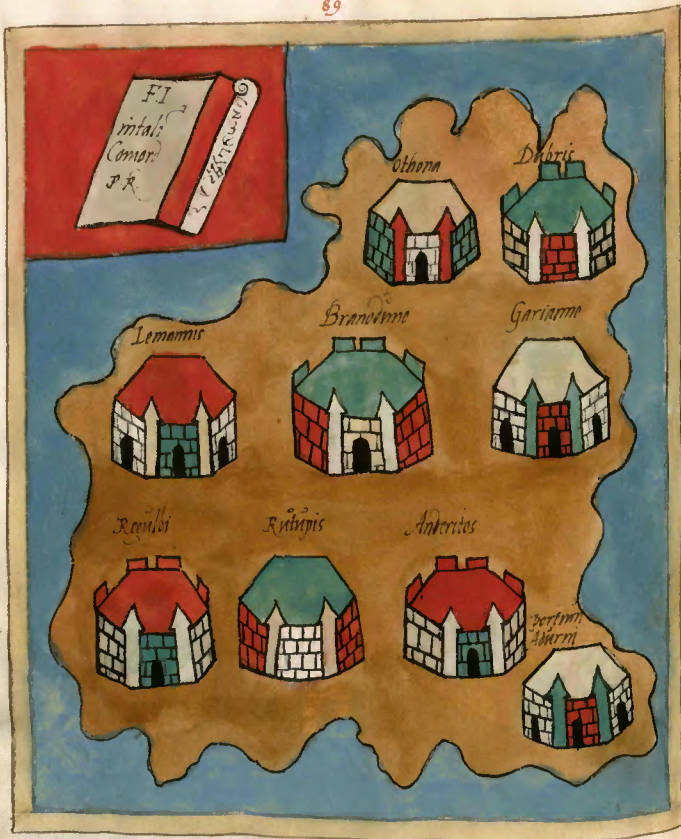 89
F.I
intali
Comord
P R
Othona
Dubris
Lemannis
Branoduno
Gariannо
Regulbi
Rutupis
Anderitos
portum
Adurni